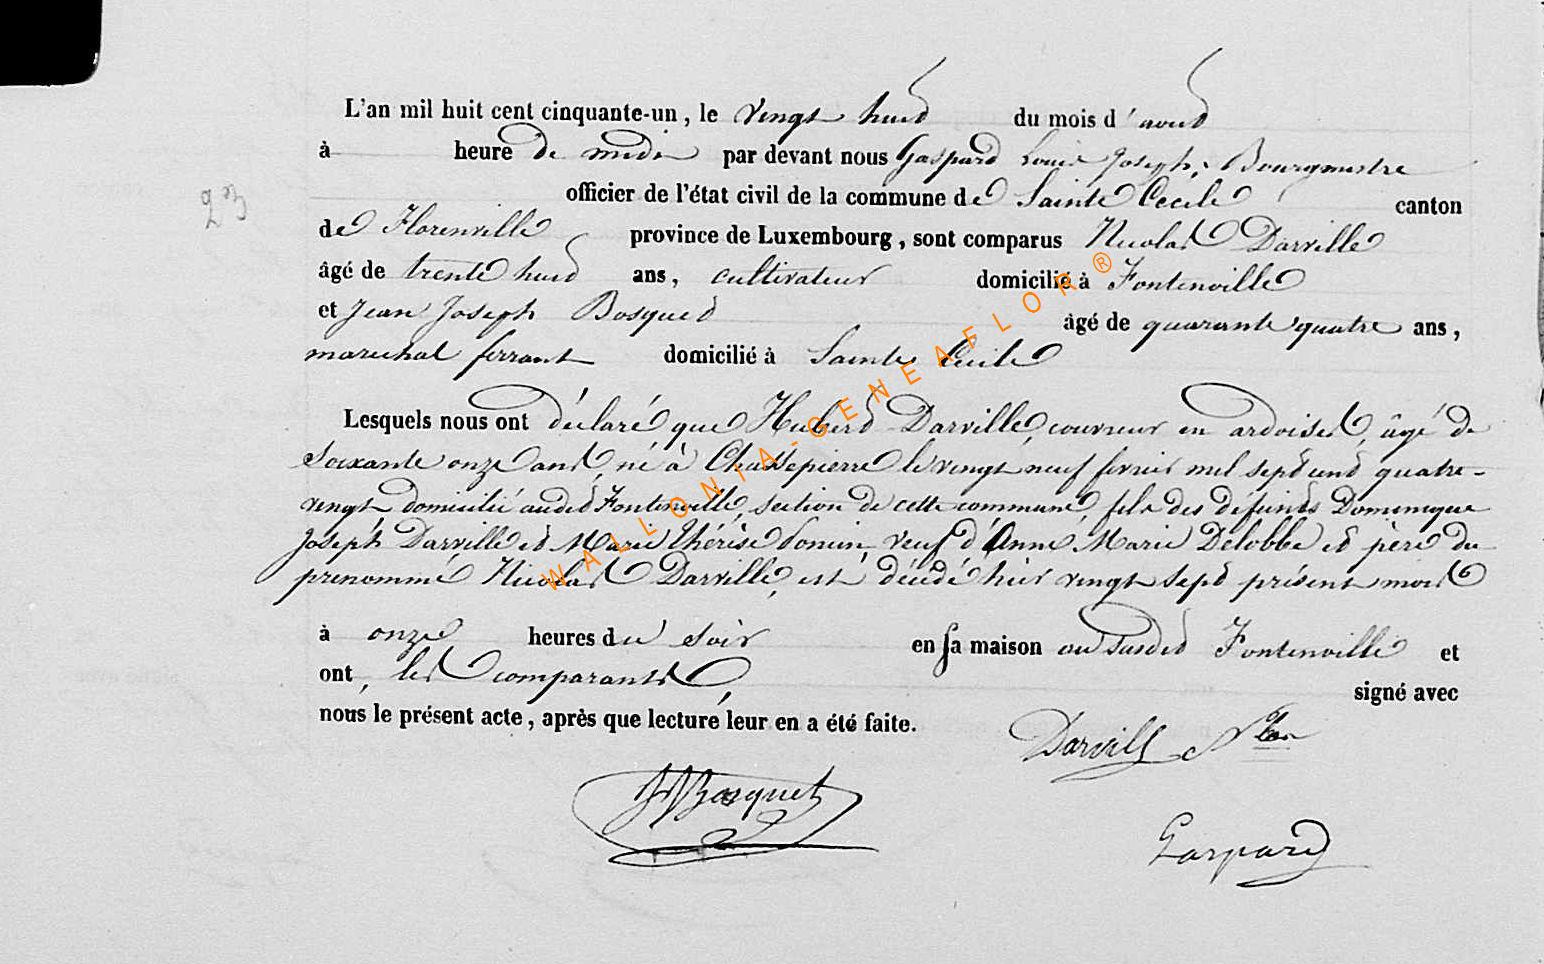 L'an mil huit cent cinquante-un, le vingt huit du mois d'aout
à heure de midi par devant nous Gaspard Louis Joseph, Bourgmestre
23
officier de l'état civil de la commune de Sainte Cecile canton
de Florenville province de Luxembourg, sont comparus Nicolas Darville
âgé de trente huit ans, cultivateur domicilié à Fontenoille
et Jean Joseph Bosquet âgé de quarante quatre ans,
marechal ferrant domicilié à Sainte Cecile
Lesquels nous ont déclaré que Hubert Darville, couvreur en ardoises, âgé de
soixante onze ans, né à Chassepierre le vingt neuf fevrier mil sept cent quatre-
vingt domicilié audit Fontenoille, section de cette commune, fils des défunts Dominique
Joseph Darville et Marie Thérèse veuf d'Anne Marie Delobbe et père du
prenommé Nicolas Darville, est décédé hier vingt sept présent mois
à onze heures du soir en sa maison au susdit Fontenoille et
ont, les comparants, signé avec
nous le présent acte, après que lecture leur en a été faite.
Darville Nlas
JJBosquet
Gaspard
WALLONIA-GENEAFLOR®